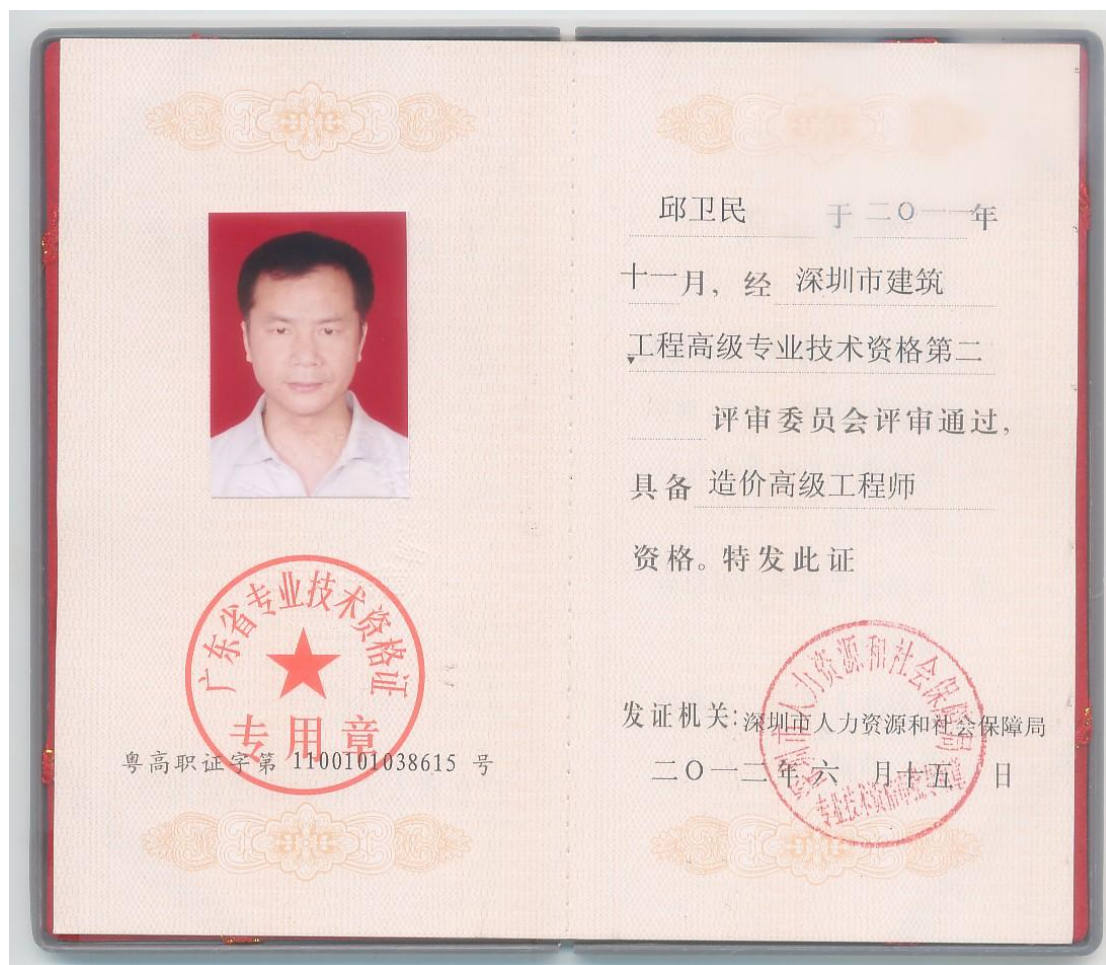 广东省专业技术资格证
专用章
粤高职证字第 1100101038615 号
邱卫民 于二〇一一年
十一月，经 深圳市建筑
工程高级专业技术资格第二
评审委员会评审通过，
具备 造价高级工程师
资格。特发此证
深圳市人力资源和社会保障局
发证机关：深圳市人力资源和社会保障局
二〇一二年 六 月十五 日